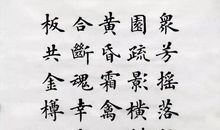 衆芳摇落
園疏影横
黄昏霜禽
合斷魂幸
板共金樽